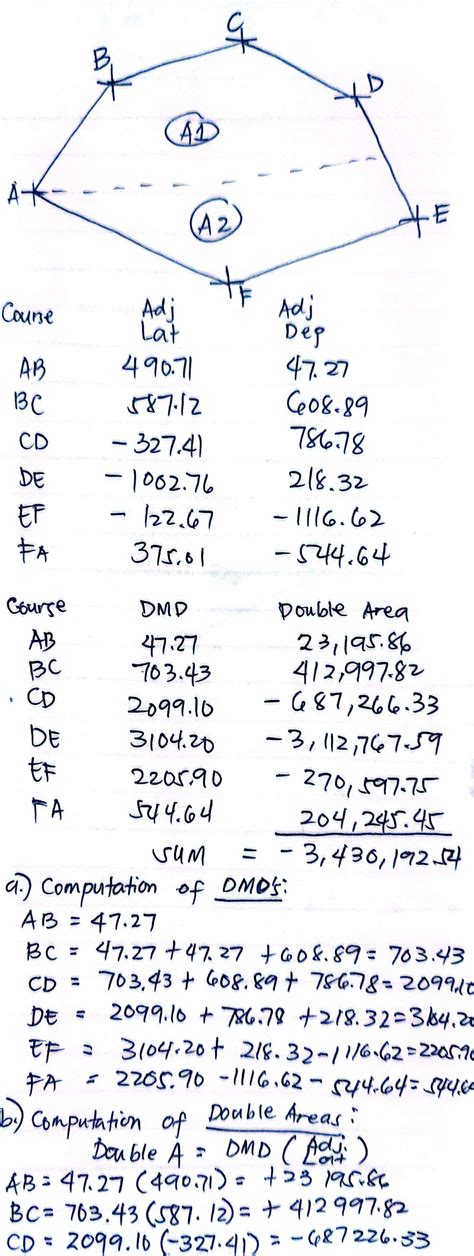 C
B
D
A1
A
A2
E
F
Course Adj Lat Adj Dep
AB 490.71 47.27
BC 587.12 608.89
CD -327.41 786.78
DE -1002.76 218.32
EF -122.67 -1116.62
FA 375.01 -544.64
Course DMD Double Area
AB 47.27 23,195.86
BC 703.43 412,997.82
CD 2099.10 -687,266.33
DE 3104.20 -3,112,767.59
EF 2205.90 -270,597.75
FA 544.64 204,245.45
SUM = -3,430,192.54
a.) Computation of DMD's:
AB = 47.27
BC = 47.27 + 47.27 + 608.89 = 703.43
CD = 703.43 + 608.89 + 786.78 = 2099.10
DE = 2099.10 + 786.78 + 218.32 = 3104.20
EF = 3104.20 + 218.32 - 1116.62 = 2205.90
FA = 2205.90 - 1116.62 - 544.64 = 544.64
b.) Computation of Double Areas:
Double A = DMD (Adj. Lat)
AB = 47.27 (490.71) = +23 195.86
BC = 703.43 (587.12) = + 412 997.82
CD = 2099.10 (-327.41) = -687226.33